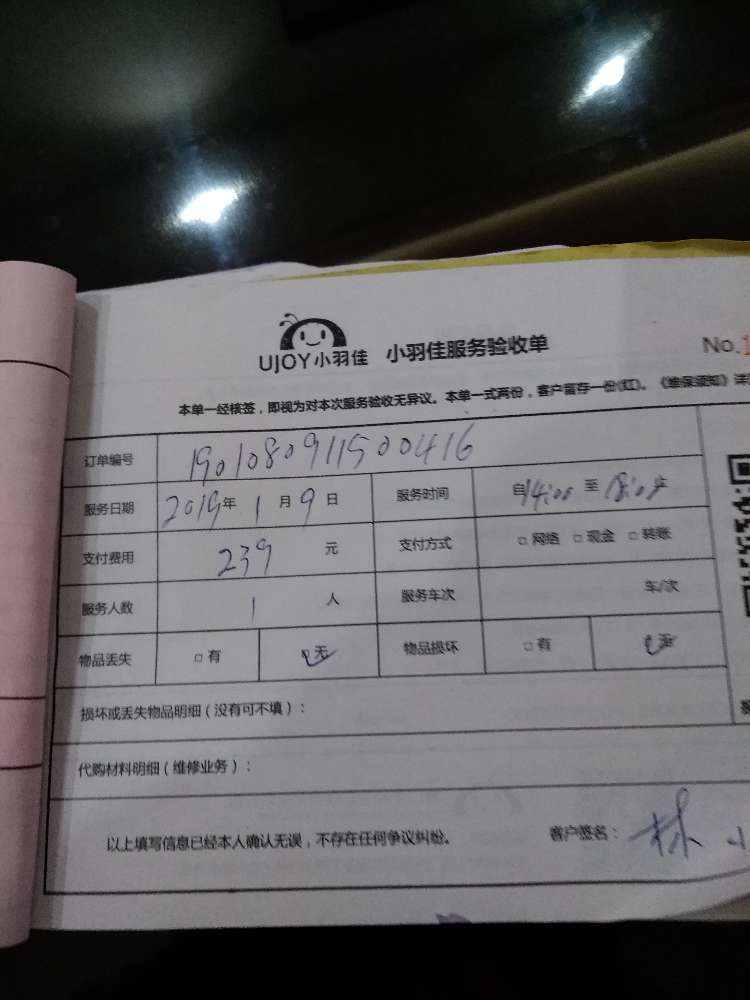 UJOY小羽佳 小羽佳服务验收单 No.1
本单一经核签，即视为对本次服务验收无异议。本单一式两份，客户留存一份(红)。《维保须知》详
订单编号 190108091150​0416
服务日期 2019年 1 月 9 日 服务时间 自14:00 至 18:00止
支付费用 239 元 支付方式 □ 网络 □ 现金 □ 转账
服务人数 1 人 服务车次 车/次
物品丢失 □ 有 无 物品损坏 □ 有 无
损坏或丢失物品明细（没有可不填）：
代购材料明细（维修业务）：
以上填写信息已经本人确认无误，不存在任何争议纠纷。 客户签名： 林 小